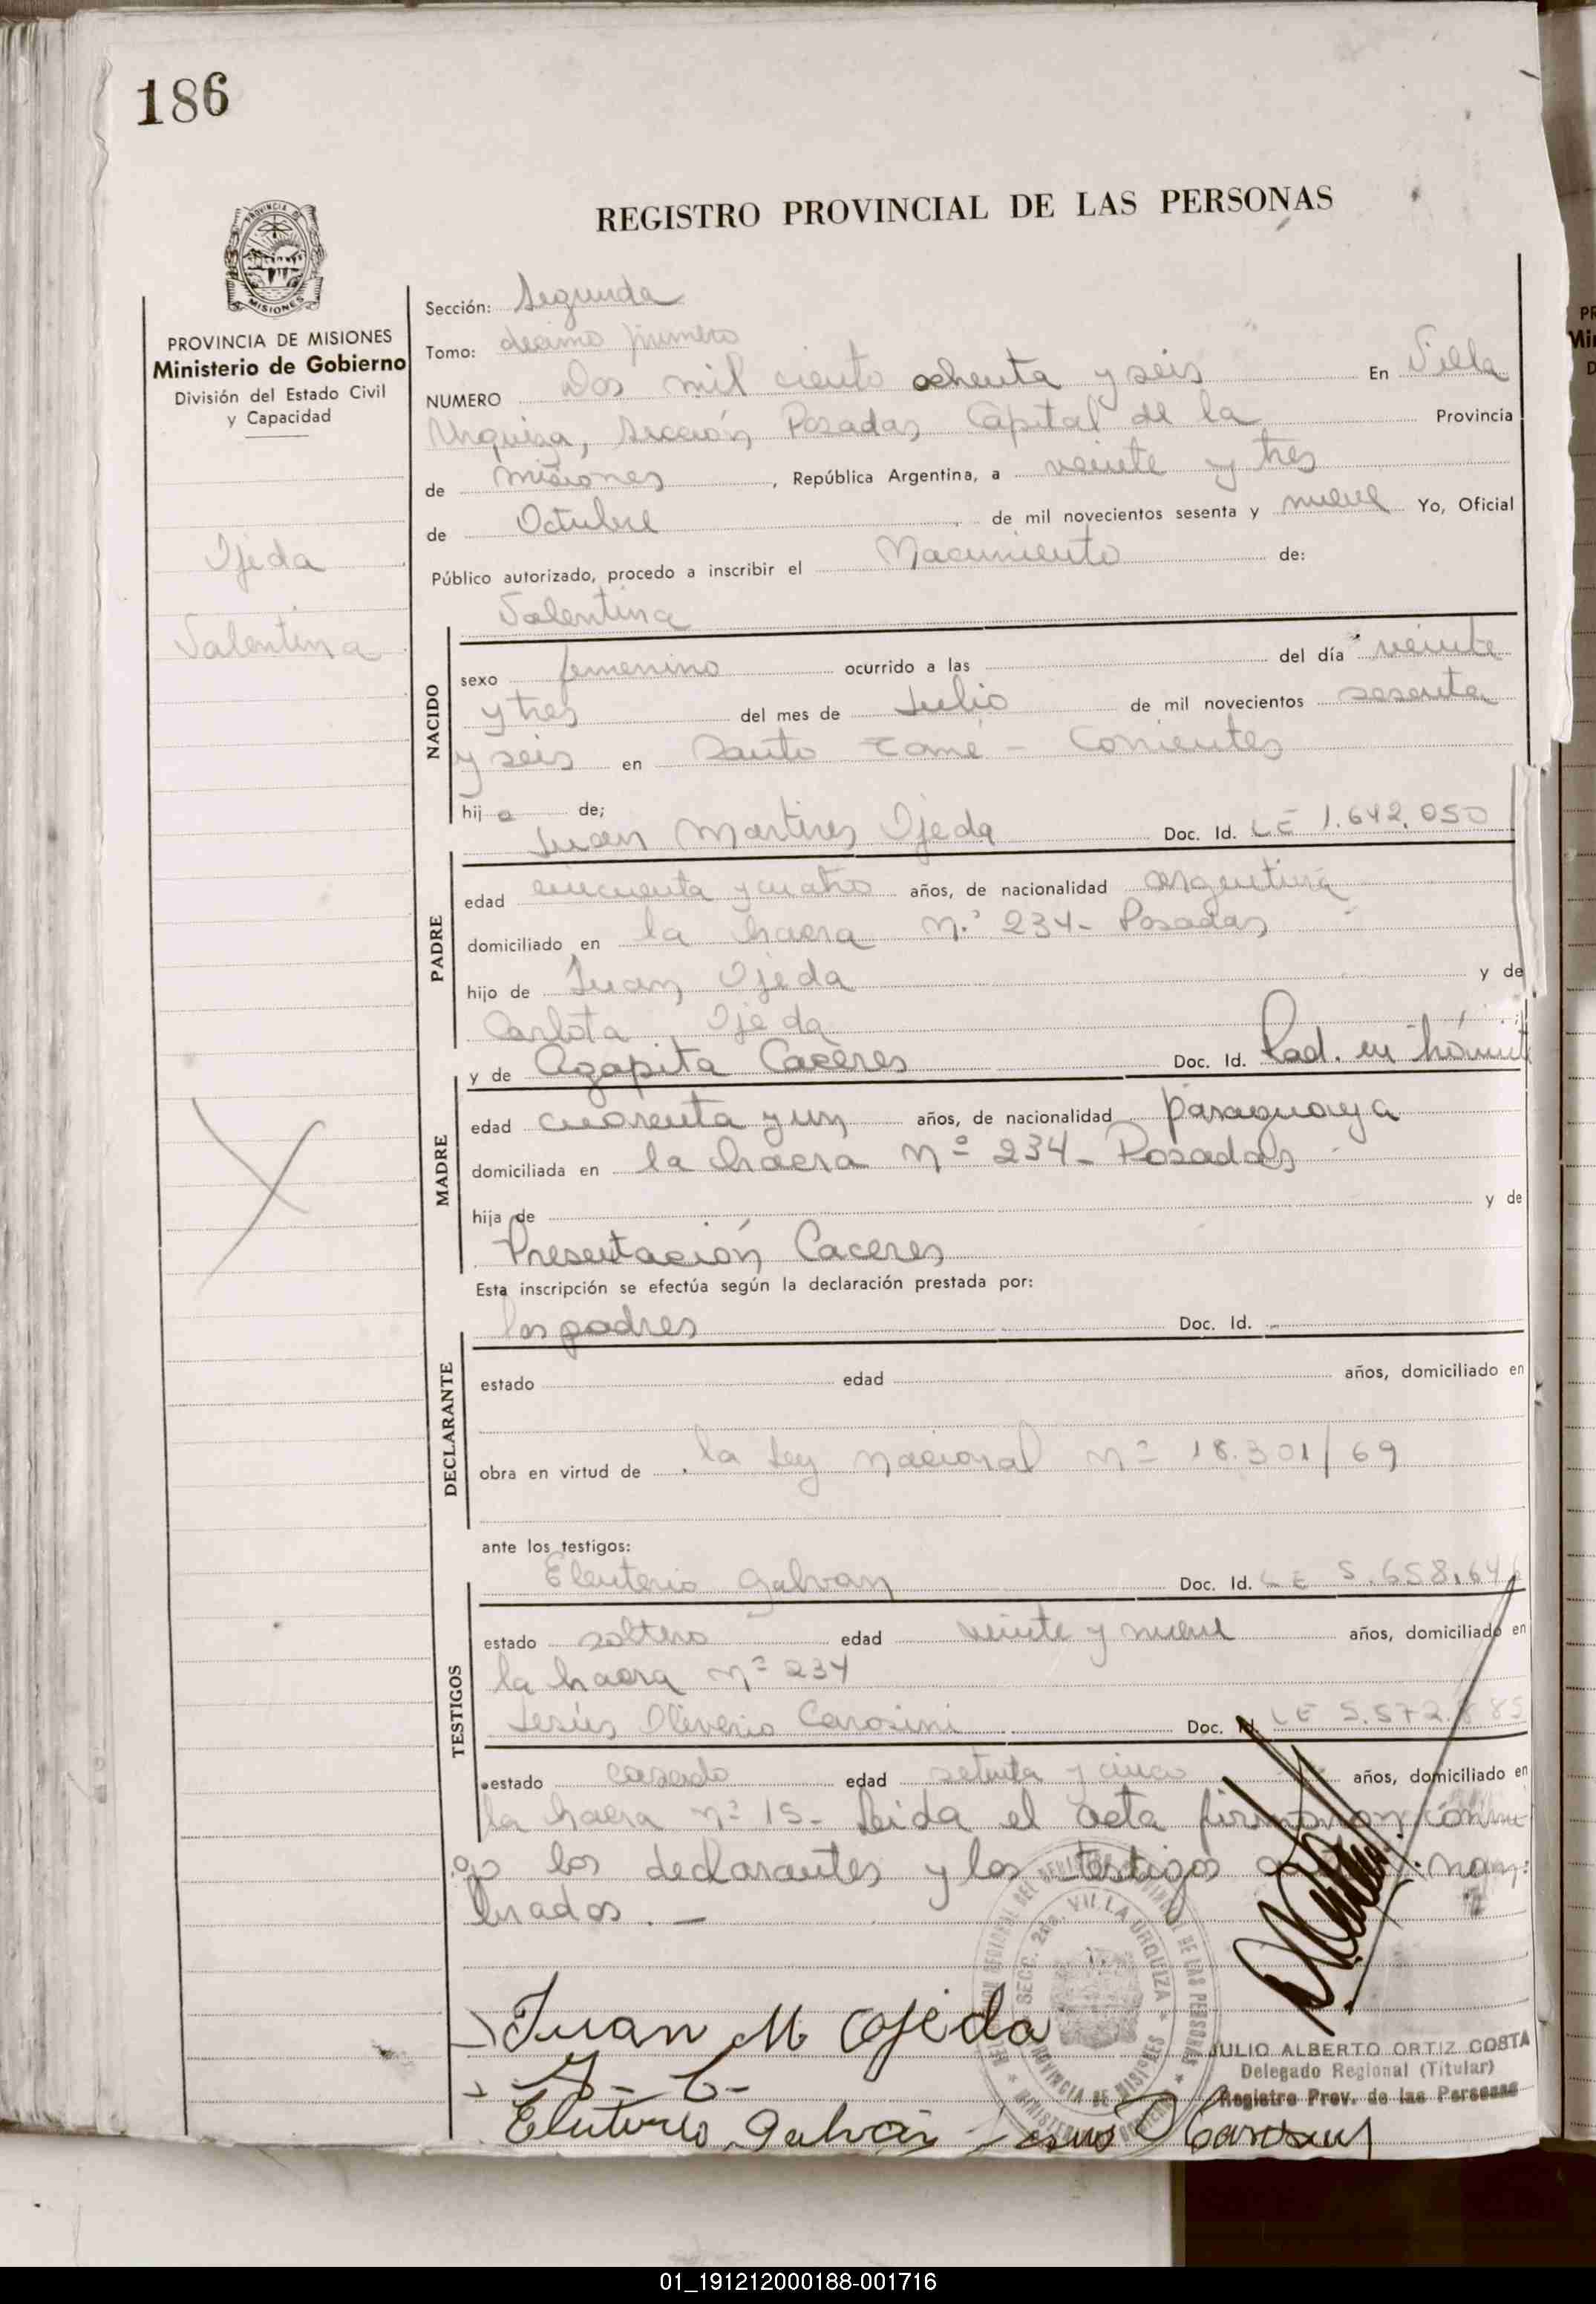 186
REGISTRO PROVINCIAL DE LAS PERSONAS
PROVINCIA DE MISIONES
Ministerio de Gobierno
División del Estado Civil
y Capacidad
Ojeda
Valentina
Sección: Segunda
Tomo: décimo primero
NUMERO Dos mil ciento ochenta y seis En Villa
Urquiza, Sección Posadas Capital de la Provincia
de Misiones, República Argentina, a veinte y tres
de Octubre de mil novecientos sesenta y nueve Yo, Oficial
Público autorizado, procedo a inscribir el Nacimiento de:
Valentina
NACIDO
sexo femenino ocurrido a las del día veinte
y tres del mes de Julio de mil novecientos sesenta
y seis en Santo Tomé - Corrientes
hija de;
Juan Martires Ojeda Doc. Id. LE 1.642.050
PADRE
edad cincuenta y cuatro años, de nacionalidad argentina
domiciliado en la hacra N.º 234- Posadas
hijo de Juan Ojeda y de
Carlota Ojeda
y de Agapita Caceres Doc. Id. Rad. en trámit
MADRE
edad cuarenta y un años, de nacionalidad paraguaya
domiciliada en la hacra Nº 234- Posadas
hija de y de
Presentación Caceres
Esta inscripción se efectúa según la declaración prestada por:
los padres Doc. Id.
DECLARANTE
estado edad años, domiciliado en
obra en virtud de la Ley nacional Nº 18.301/69
ante los testigos:
Eleuterio Galvan Doc. Id. LE 5.658.646
TESTIGOS
estado soltero edad veinte y nueve años, domiciliado en
la hacra Nº 234
Jesús Oliverio Carosini Doc. Id. LE 5.572.885
estado casado edad setenta y cinco años, domiciliado en
la hacra Nº 15- Leida el acta firmaron conmi-
go los declarantes y los testigos nom-
brados.-
Juan M Ojeda
A - C -
Eluterio Galván Jesus O Carosini
SECC. 2da. VILLA URQUIZA
PROVINCIA DE MISIONES
JULIO ALBERTO ORTIZ COSTA
Delegado Regional (Titular)
Registro Prov. de las Personas
01_191212000188-001716